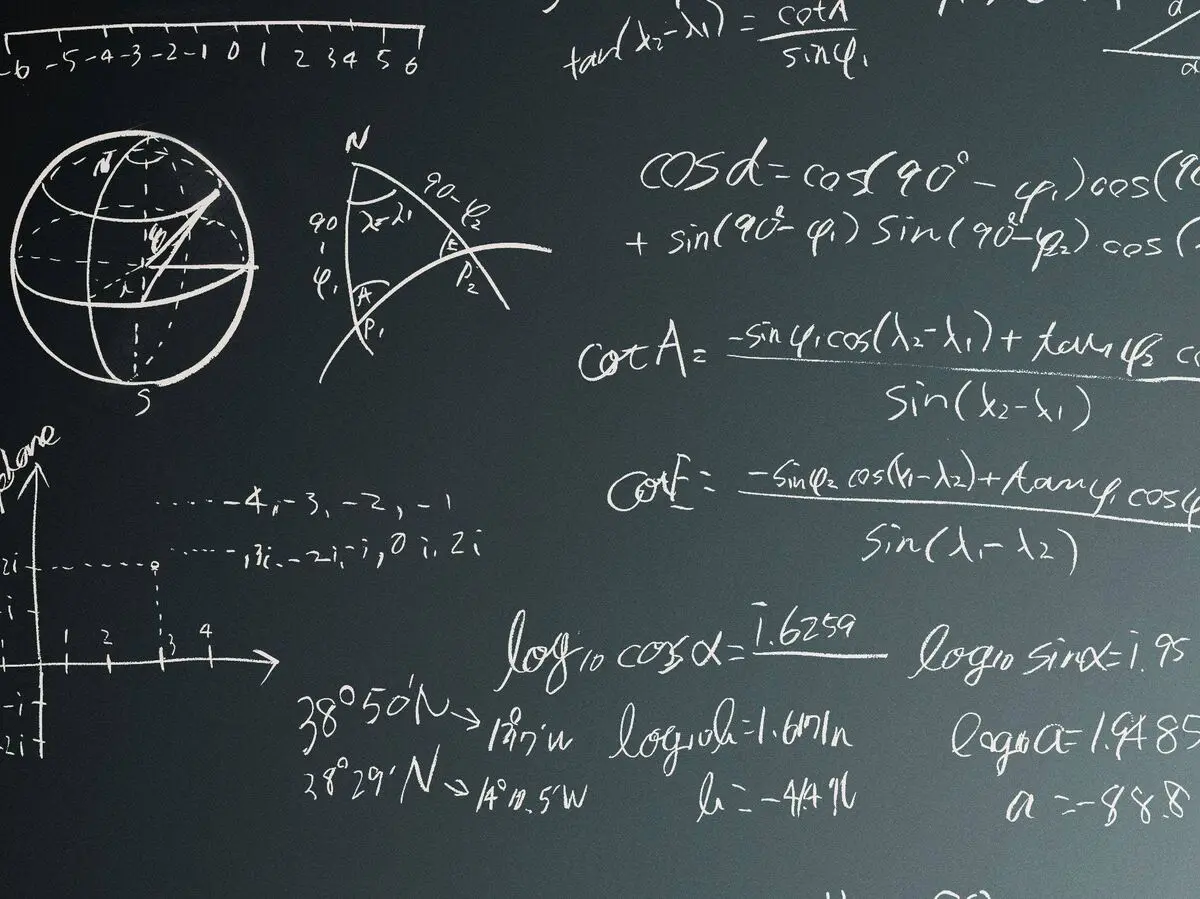 -6 -5 -4 -3 -2 -1 0 1 2 3 4 5 6
tan(λ2-λ1) = cotA / sinφ1
α
N
S
φ
λ
N
90-φ2
90-φ1
A
E
P1
P2
cosα = cos(90°-φ1)cos(90
+ sin(90°-φ1) sin(90°-φ2) cos(
cotA = -sinφ1cos(λ2-λ1)+tanφ2 co
sin(λ2-λ1)
cotE = -sinφ2 cos(λ1-λ2)+tanφ1 cosφ
sin(λ1-λ2)
plane
-4, -3, -2, -1
-3i, -2i, -i, 0 i, 2i
2i
i
1 2 3 4
-i
-2i
log10 cosα = 1.6259
log10 sinα = 1.95
38°50'N →
38°29'N →
log10 a = 1.9485
a = -88.8